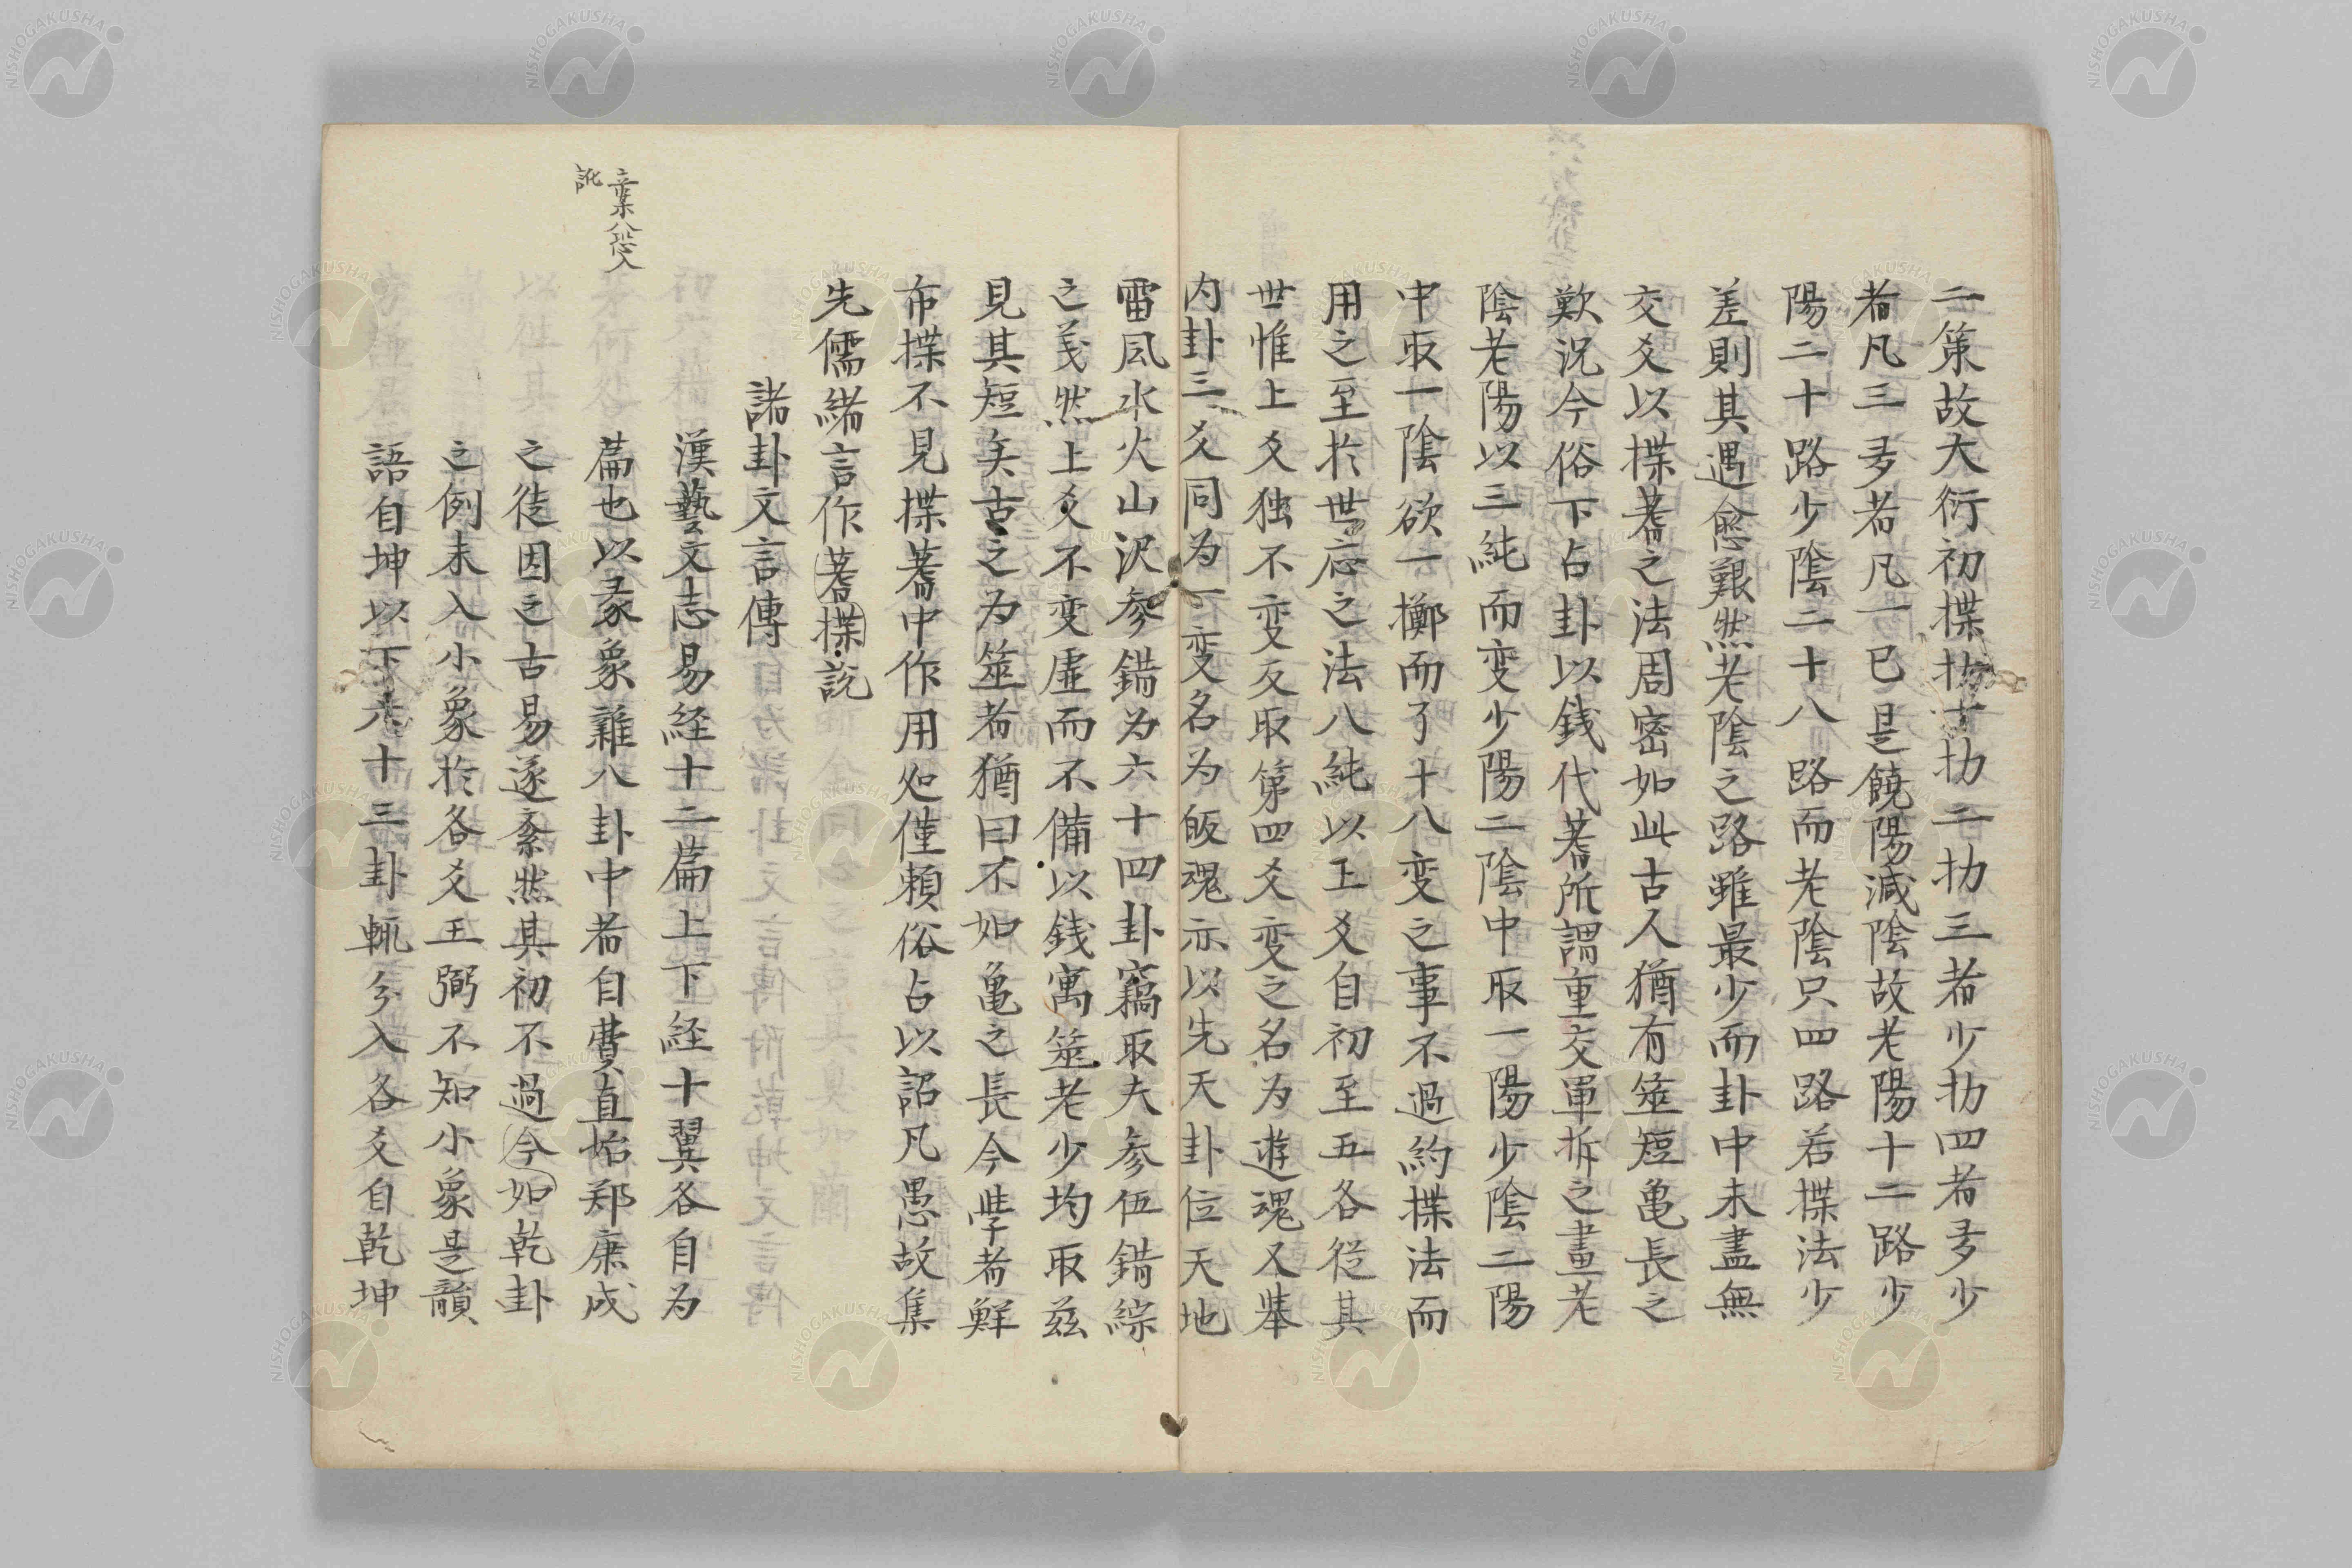 二策故大衍初揲扐十扐二扐三者少扐四者多少
者凡三多者凡一已是饒陽減陰故老陽十二路少
陽二十路少陰二十八路而老陰只四路若揲法少
差則其遇愈艱然老陰之路雖最少而卦中未盡無
交爻以揲蓍之法周密如此古人猶有筮短亀長之
歎況今俗下占卦以銭代蓍所謂重交単拆之畫老
陰老陽以三純而変少陽二陰中取一陽少陰二陽
中取一陰欲一擲而了十八変之事不過約揲法而
用之至於世応之法八純以上爻自初至五各従其
世惟上爻独不変反取第四爻変之名为遊魂又挙
内卦三爻同为一变名为皈魂示以先天卦位天地
雷風水火山沢参錯为六十四卦竊取夫参伍錯綜
之義然上爻不变虚而不備以銭寓筮老少均取兹
見其短矣古之为筮者猶曰不如亀之長今斈者鮮
布揲不見揲蓍中作用処僅頼俗占以詔凡愚故集
先儒緒言作蓍揲説
諸卦文言傳
漢藝文志易経十二篇上下経十翼各自为
篇也以彖象雜八卦中者自費直始郑康成
之徒因之古易遂紊然其初不過今如乾卦
之例未入小象於各爻王弼不知小象是韻
語自坤以下六十三卦輒分入各爻自乾坤
立案八恐入
訛
NISHOGAKUSHA